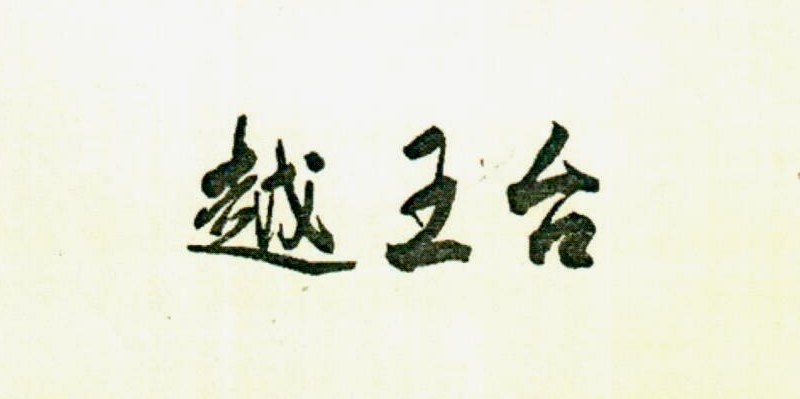 越王台